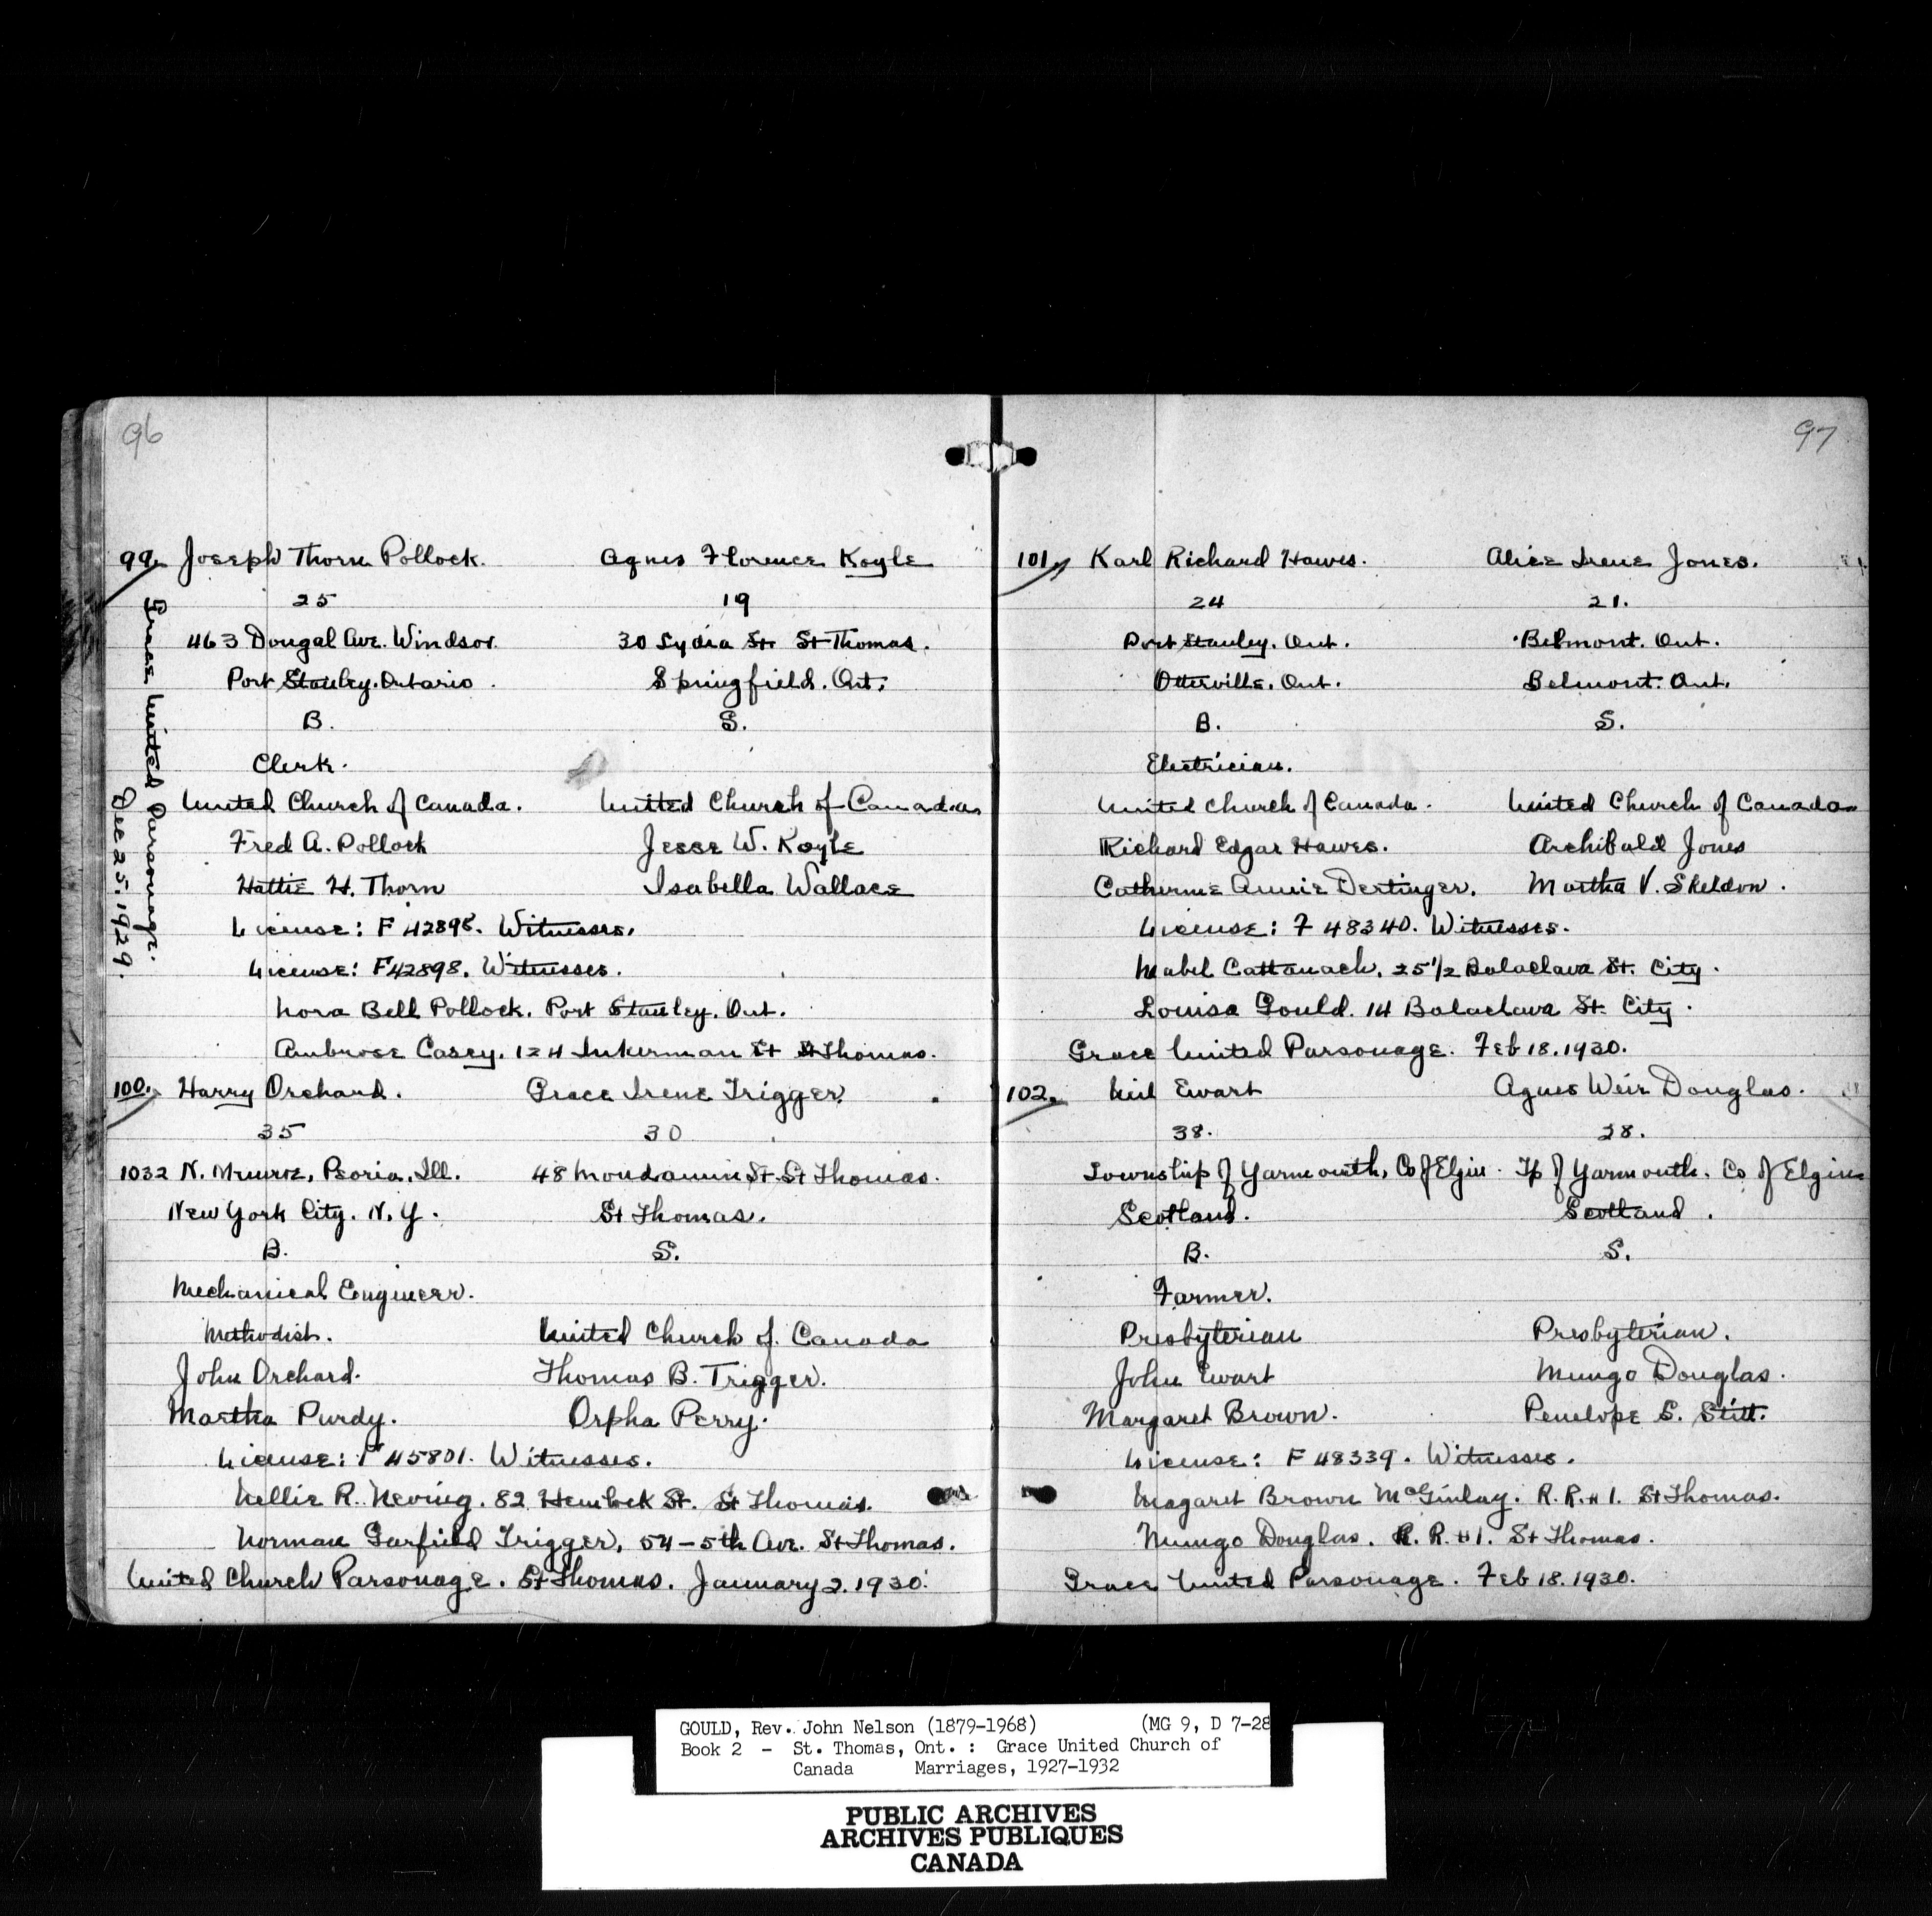 96
99. Joseph Thorn Pollock. Agnes Florence Koyle
25 19
463 Dougal Ave. Windsor. 30 Lydia St St Thomas.
Port Stanley. Ontario. Springfield. Ont.
B. S.
Clerk.
United Church of Canada. United Church of Canada
Fred A. Pollock Jesse W. Koyle
Hattie H. Thorn Isabella Wallace
License: F 42898. Witnesses.
License: F42898. Witnesses.
Nora Bell Pollock. Port Stanley. Ont.
Ambrose Casey. 124 Inkerman St St Thomas.
Grace United Parsonage.
Dec 25. 1929.
100. Harry Orchard. Grace Irene Trigger.
35 30
1032 N. Munroe, Peoria, Ill. 48 Mondamin St. St Thomas.
New York City. N.Y. St Thomas.
B. S.
Mechanical Engineer.
Methodist. United Church of Canada
John Orchard. Thomas B. Trigger.
Martha Purdy. Orpha Perry.
License: F 45801. Witnesses.
Nellie R. Neving. 82 Hemlock St. St Thomas.
Norman Garfield Trigger, 54-5th Ave. St Thomas.
United Church Parsonage. St Thomas. January 2. 1930.
97
101. Karl Richard Hawes. Alice Irene Jones.
24 21.
Port Stanley. Ont. Belmont. Ont.
Otterville. Ont. Belmont. Ont.
B. S.
Electrician.
United Church of Canada. United Church of Canada
Richard Edgar Hawes. Archibald Jones
Catherine Annie Dertinger. Martha V. Skeldon.
License: F 48340. Witnesses.
Mabel Cattanach. 25 1/2 Balaclava St. City.
Louisa Gould. 14 Balaclava St. City.
Grace United Parsonage. Feb 18. 1930.
102. Neil Ewart Agnes Weir Douglas.
38. 28.
Township of Yarmouth, Co of Elgin. Tp of Yarmouth. Co of Elgin
Scotland. Scotland.
B. S.
Farmer.
Presbyterian Presbyterian.
John Ewart Mungo Douglas.
Margaret Brown. Penelope S. Stitt.
License: F 48339. Witnesses.
Magaret Brown McGinlay. R.R. #1. St Thomas.
Mungo Douglas. R.R. #1. St Thomas.
Grace United Parsonage. Feb 18. 1930.
GOULD, Rev. John Nelson (1879-1968) (MG 9, D 7-28
Book 2 - St. Thomas, Ont. : Grace United Church of
Canada Marriages, 1927-1932
PUBLIC ARCHIVES
ARCHIVES PUBLIQUES
CANADA